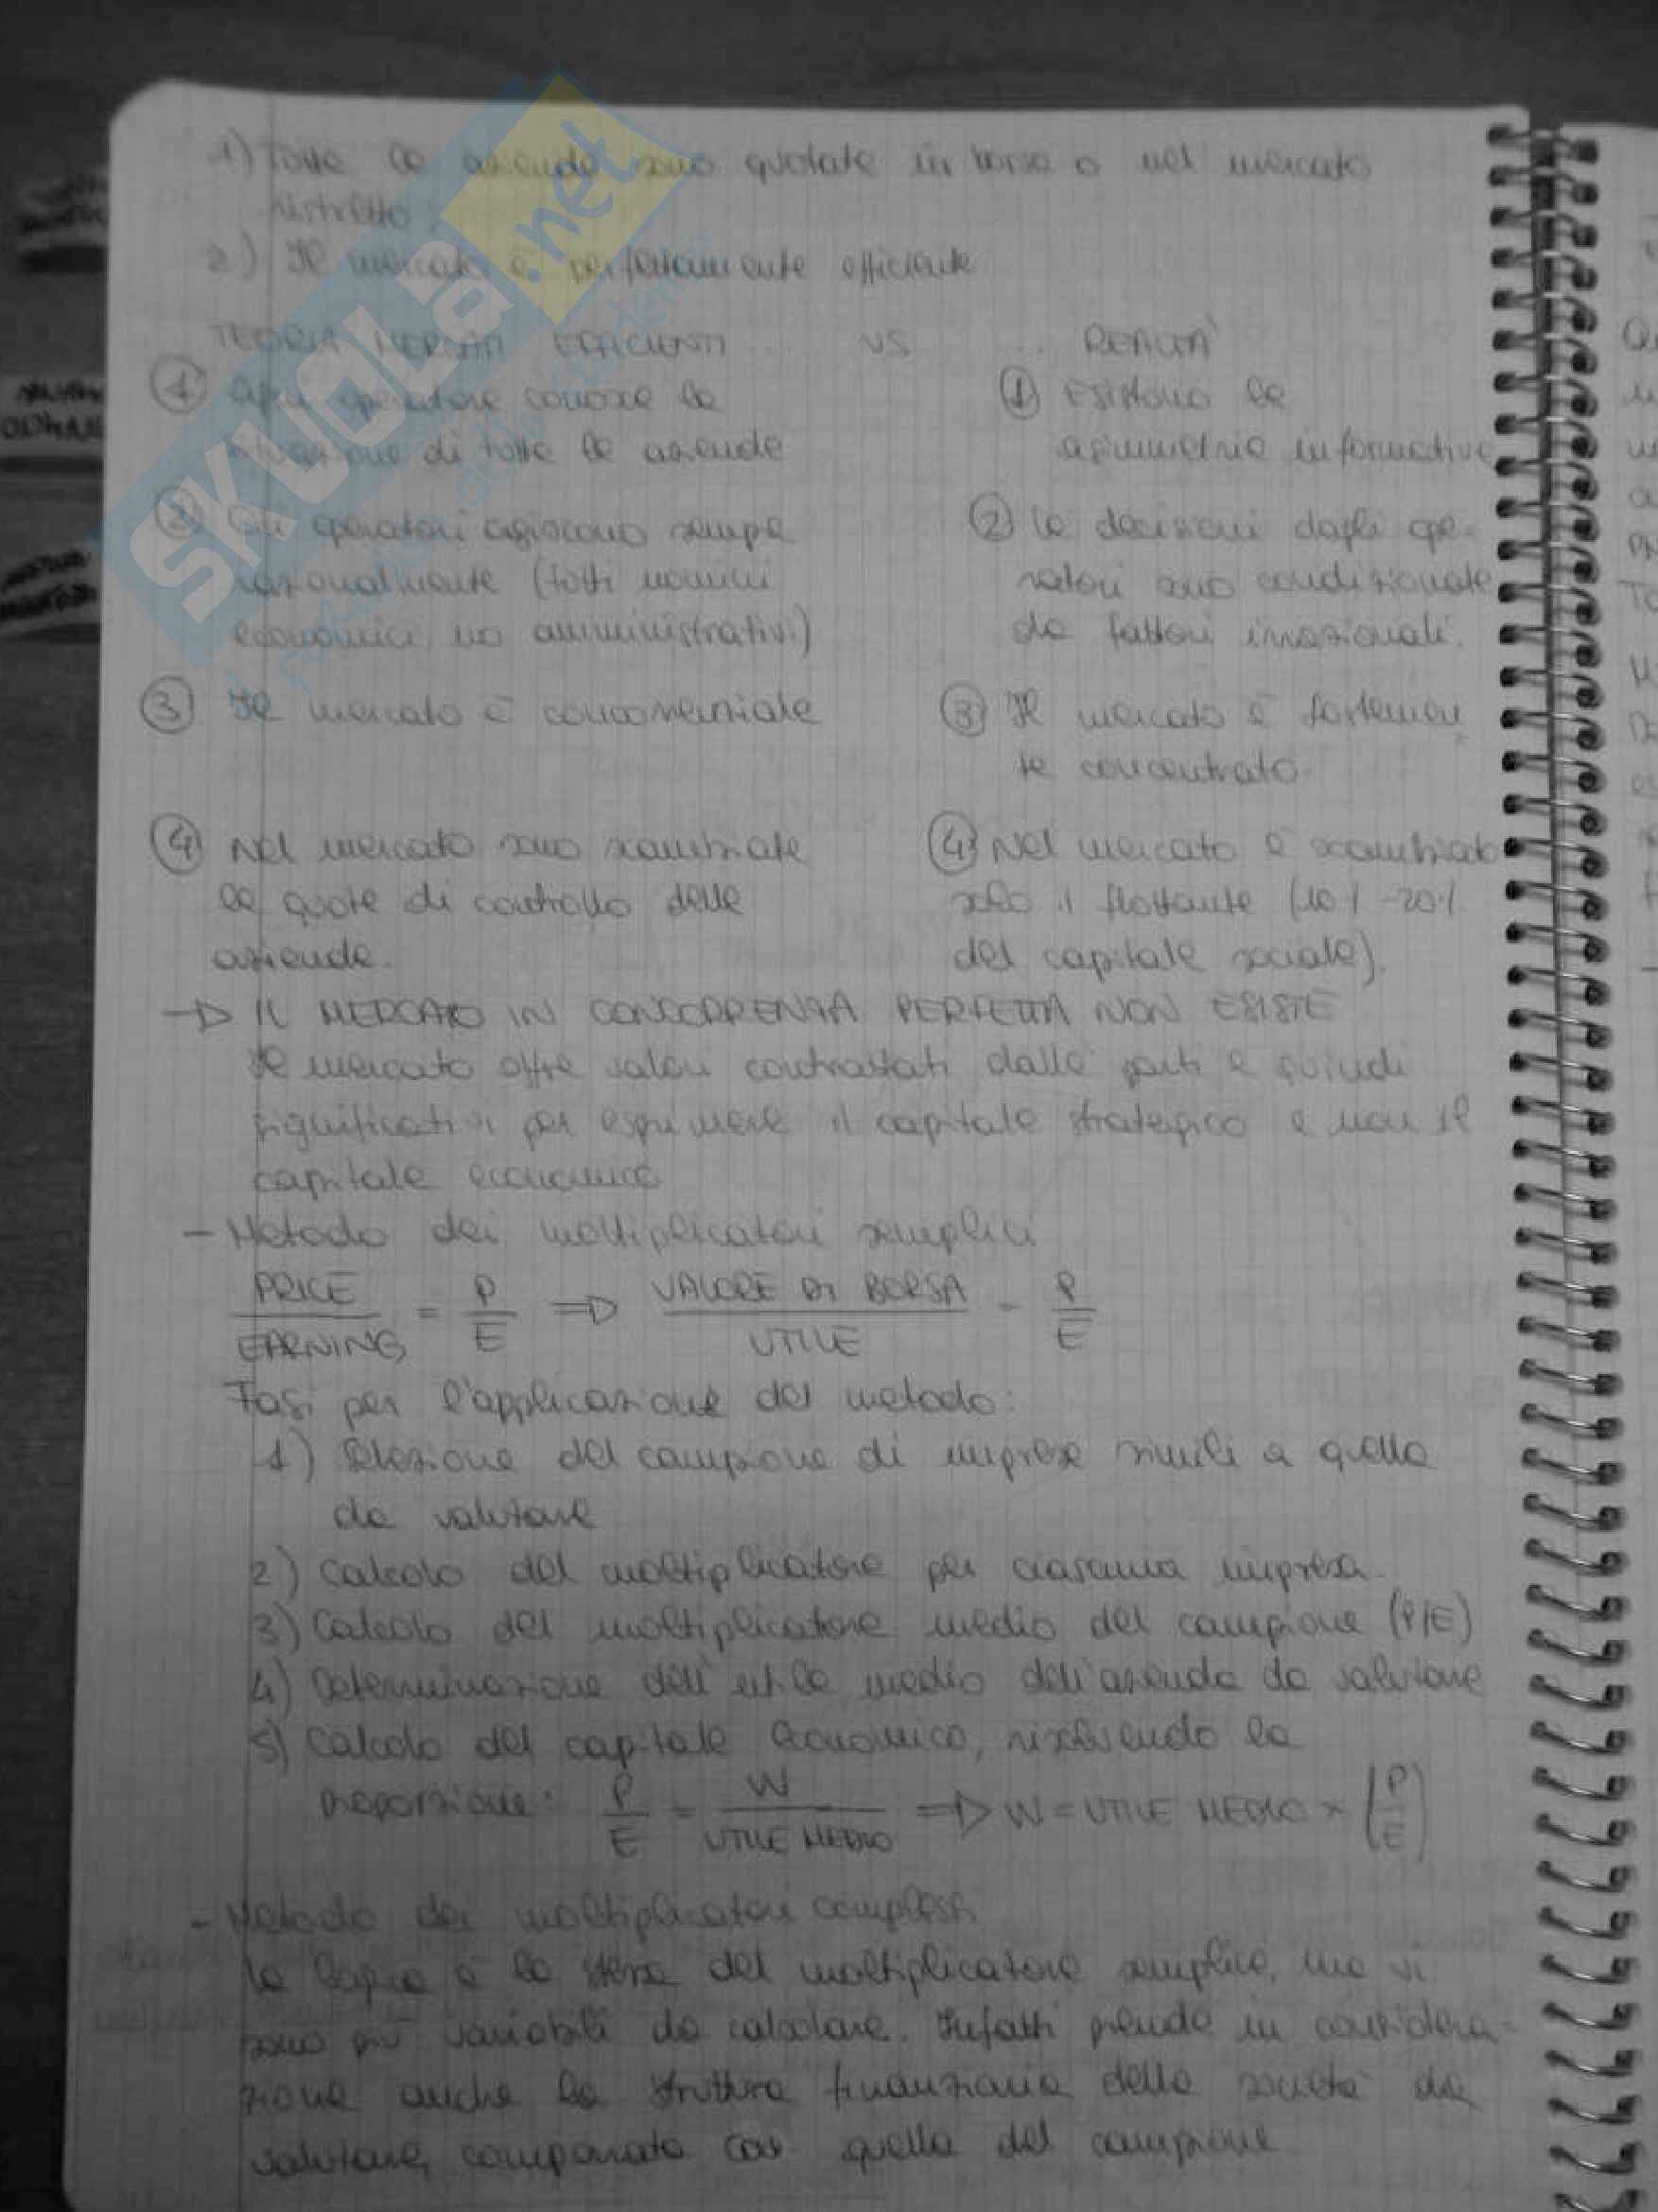 1) Tutte le aziende sono quotate in borsa o nel mercato
ristretto;
2) Il mercato è perfettamente efficiente
TEORIA MERCATI EFFICIENTI VS REALTÀ
① Ogni operatore conosce la
situazione di tutte le aziende
① Esistono le
asimmetrie informative
② Gli operatori agiscono sempre
razionalmente (tutti uomini
economici, no amministrativi)
② Le decisioni degli ope-
ratori sono condizionate
da fattori irrazionali.
③ Il mercato è concorrenziale
③ Il mercato è fortemen
te concentrato.
④ Nel mercato sono scambiate
le quote di controllo delle
aziende.
④ Nel mercato è scambiato
solo il flottante (10% -20%
del capitale sociale).
→ IL MERCATO IN CONCORRENZA PERFETTA NON ESISTE
Il mercato offre valori contrattati dalle parti e quindi
significativi per esprimere il capitale strategico e non il
capitale economico
- Metodo dei moltiplicatori semplici
PRICE/EARNING = P/E ⇒ VALORE DI BORSA/UTILE = P/E
Fasi per l'applicazione del metodo:
1) Selezione del campione di imprese simili a quella
da valutare
2) Calcolo del moltiplicatore per ciascuna impresa.
3) Calcolo del moltiplicatore medio del campione (P/E)
4) Determinazione dell'utile medio dell'azienda da valutare
5) Calcolo del capitale economico, risolvendo la
proporzione: P/E = W/UTILE MEDIO ⇒ W = UTILE MEDIO × (P/E)
- Metodo dei moltiplicatori complessi
La logica è la stessa del moltiplicatore semplice, ma vi
sono più variabili da calcolare. Infatti prende in considera-
zione anche la struttura finanziaria della società da
valutare, comparata con quella del campione
SKUOLA.net